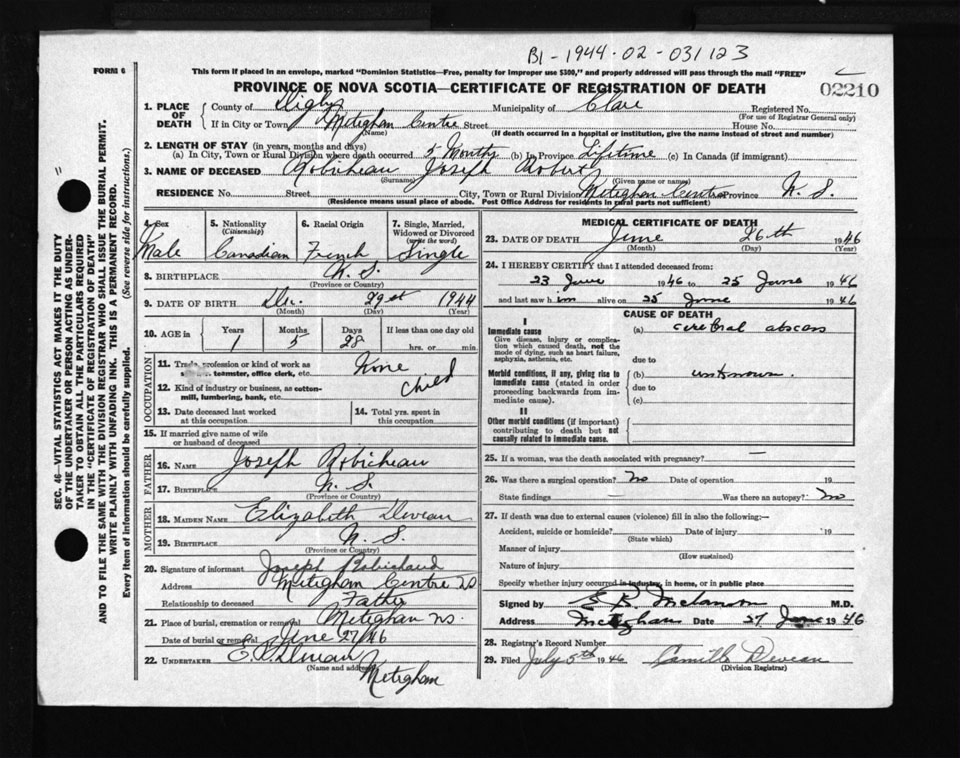 B1-1944-02-031123
FORM 6
This form if placed in an envelope, marked "Dominion Statistics—Free, penalty for improper use $300," and properly addressed will pass through the mail "FREE"
PROVINCE OF NOVA SCOTIA—CERTIFICATE OF REGISTRATION OF DEATH
02210
SEC. 46—VITAL STATISTICS ACT MAKES IT THE DUTY
OF THE UNDERTAKER OR PERSON ACTING AS UNDER-
TAKER TO OBTAIN ALL THE PARTICULARS REQUIRED
IN THE "CERTIFICATE OF REGISTRATION OF DEATH"
AND TO FILE THE SAME WITH THE DIVISION REGISTRAR WHO SHALL ISSUE THE BURIAL PERMIT.
WRITE PLAINLY WITH UNFADING INK. THIS IS A PERMANENT RECORD.
Every item of information should be carefully supplied. (See reverse side for instructions.)
1. PLACE OF DEATH County of Digby Municipality of Clare Registered No.
(For use of Registrar General only)
If in City or Town Meteghan Centre Street House No.
(Name) (If death occurred in a hospital or institution, give the name instead of street and number)
2. LENGTH OF STAY (in years, months and days)
(a) In City, Town or Rural Division where death occurred 5 Months (b) In Province Lifetime (c) In Canada (if immigrant)
3. NAME OF DECEASED Robicheau Joseph Robert
(Surname) (Given name or names)
RESIDENCE No. Street City, Town or Rural Division Meteghan Centre Province N.S.
(Residence means usual place of abode. Post Office Address for residents in rural parts not sufficient)
4. Sex Male
5. Nationality (Citizenship) Canadian
6. Racial Origin French
7. Single, Married, Widowed or Divorced (write the word) Single
8. BIRTHPLACE N.S.
(Province or Country)
9. DATE OF BIRTH Dec. 29st 1944
(Month) (Day) (Year)
10. AGE in Years 1 Months 5 Days 28 If less than one day old
hrs. or min
OCCUPATION
11. Trade, profession or kind of work as teamster, office clerk, etc. None
12. Kind of industry or business, as cotton-mill, lumbering, bank, etc. Child
13. Date deceased last worked at this occupation
14. Total yrs. spent in this occupation
15. If married give name of wife or husband of deceased
FATHER
16. NAME Joseph Robicheau
17. BIRTHPLACE N.S.
(Province or Country)
MOTHER
18. MAIDEN NAME Elizabeth Deveau
19. BIRTHPLACE N.S.
(Province or Country)
20. Signature of informant Joseph Robichaud
Address Meteghan Centre NS
Relationship to deceased Father
21. Place of burial, cremation or removal Meteghan NS.
Date of burial or removal June 27/46
22. UNDERTAKER E. Deveau
(Name and address) Meteghan
MEDICAL CERTIFICATE OF DEATH
23. DATE OF DEATH June 26th 1946
(Month) (Day) (Year)
24. I HEREBY CERTIFY that I attended deceased from:
23 June 1946 to 25 June 1946
and last saw him alive on 25 June 1946
CAUSE OF DEATH
I
Immediate cause (a) cerebral abscess
Give disease, injury or complication which caused death, not the mode of dying, such as heart failure, asphyxia, asthenia, etc.
due to
Morbid conditions, if any, giving rise to immediate cause (stated in order proceeding backwards from immediate cause). (b) unknown.
due to
(c)
II
Other morbid conditions (if important) contributing to death but not causally related to immediate cause.
25. If a woman, was the death associated with pregnancy? —
26. Was there a surgical operation? No Date of operation 19
State findings — Was there an autopsy? No
27. If death was due to external causes (violence) fill in also the following:—
Accident, suicide or homicide? Date of injury 19
(State which)
Manner of injury
(How sustained)
Nature of injury
Specify whether injury occurred in industry, in home, or in public place
Signed by E B. Melanson M.D.
Address Meteghan Date 27 June 1946
28. Registrar's Record Number
29. Filed July 5th 1946 Camille Deveau
(Division Registrar)